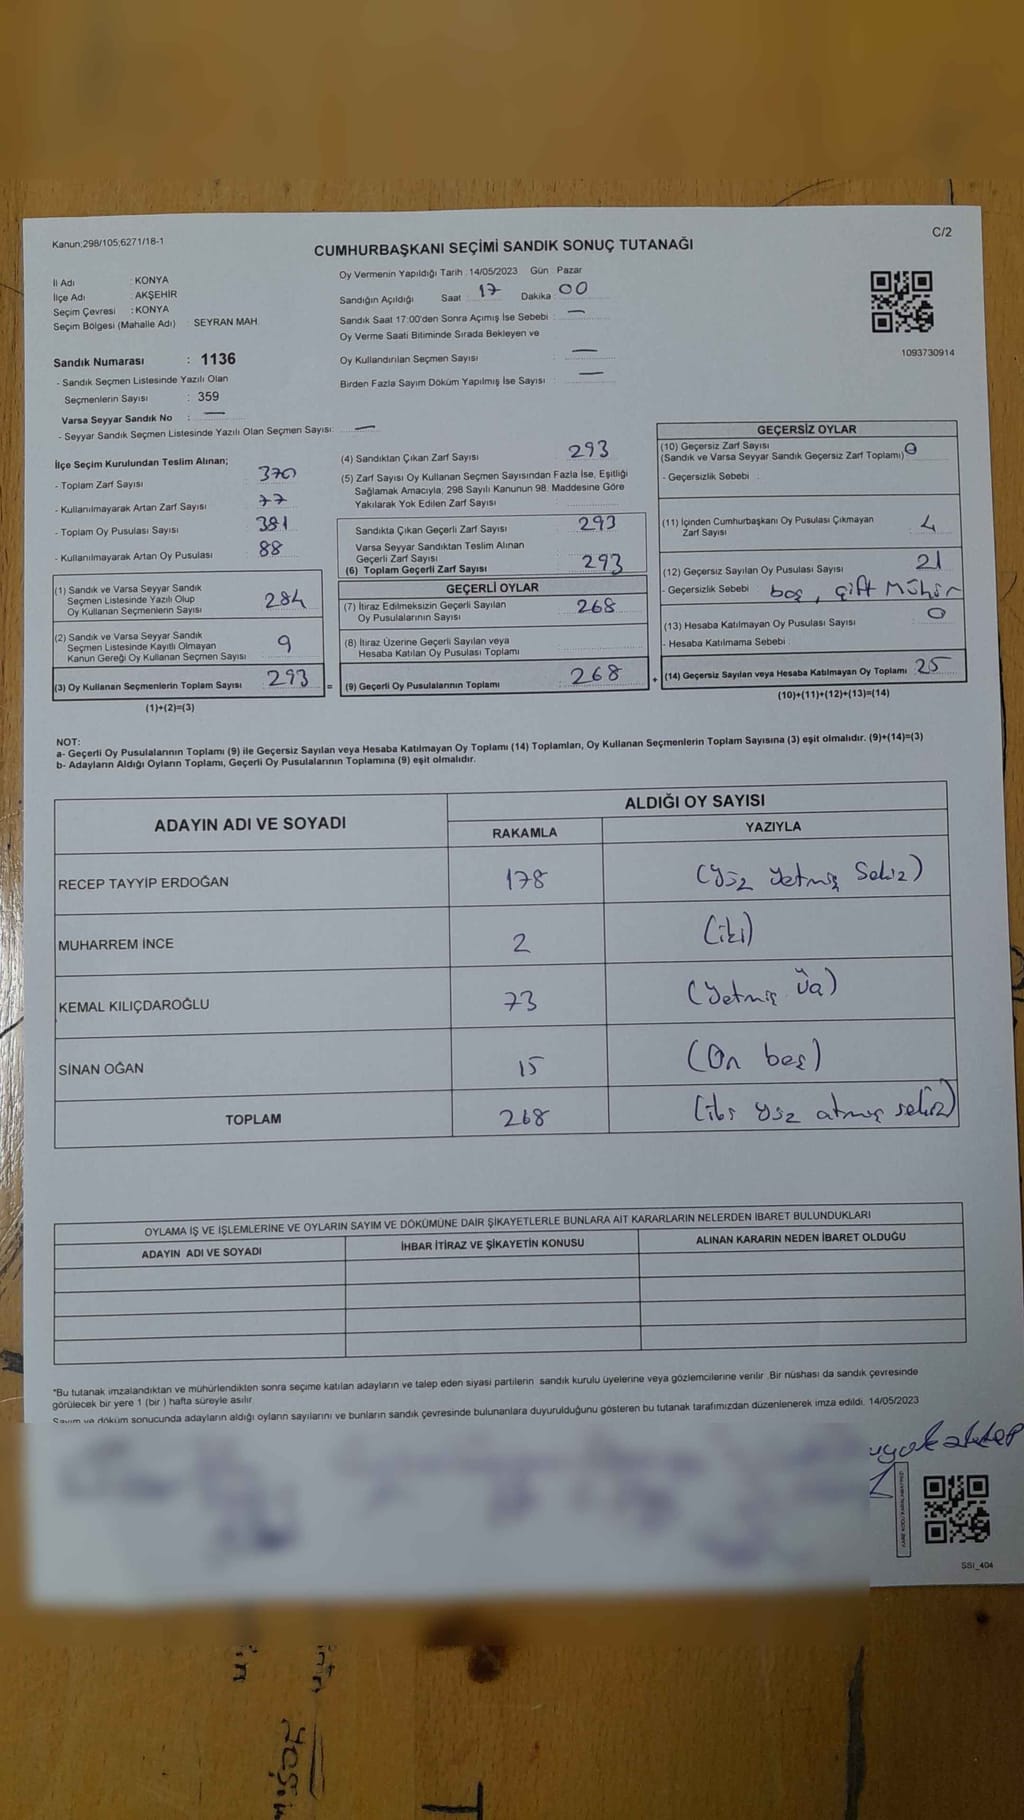 Kanun;298/105;6271/18-1
C/2
CUMHURBAŞKANI SEÇİMİ SANDIK SONUÇ TUTANAĞI
İl Adı : KONYA
İlçe Adı : AKŞEHİR
Seçim Çevresi : KONYA
Seçim Bölgesi (Mahalle Adı) : SEYRAN MAH.
Oy Vermenin Yapıldığı Tarih : 14/05/2023 Gün : Pazar
Sandığın Açıldığı Saat : 17 Dakika : 00
Sandık Saat 17:00'den Sonra Açımış İse Sebebi : —
Oy Verme Saati Bitiminde Sırada Bekleyen ve
Oy Kullandırılan Seçmen Sayısı : —
Birden Fazla Sayım Döküm Yapılmış İse Sayısı : —
1093730914
Sandık Numarası : 1136
- Sandık Seçmen Listesinde Yazılı Olan
Seçmenlerin Sayısı : 359
Varsa Seyyar Sandık No : —
- Seyyar Sandık Seçmen Listesinde Yazılı Olan Seçmen Sayısı: —
İlçe Seçim Kurulundan Teslim Alınan;
- Toplam Zarf Sayısı 370
- Kullanılmayarak Artan Zarf Sayısı 77
- Toplam Oy Pusulası Sayısı 381
- Kullanılmayarak Artan Oy Pusulası 88
(1) Sandık ve Varsa Seyyar Sandık
Seçmen Listesinde Yazılı Olup
Oy Kullanan Seçmenlerin Sayısı 284
(2) Sandık ve Varsa Seyyar Sandık
Seçmen Listesinde Kayıtlı Olmayan
Kanun Gereği Oy Kullanan Seçmen Sayısı 9
(3) Oy Kullanan Seçmenlerin Toplam Sayısı 293 =
(1)+(2)=(3)
(4) Sandıktan Çıkan Zarf Sayısı 293
(5) Zarf Sayısı Oy Kullanan Seçmen Sayısından Fazla İse, Eşitliği
Sağlamak Amacıyla; 298 Sayılı Kanunun 98. Maddesine Göre
Yakılarak Yok Edilen Zarf Sayısı
Sandıkta Çıkan Geçerli Zarf Sayısı 293
Varsa Seyyar Sandıktan Teslim Alınan
Geçerli Zarf Sayısı
(6) Toplam Geçerli Zarf Sayısı 293
GEÇERLİ OYLAR
(7) İtiraz Edilmeksizin Geçerli Sayılan
Oy Pusulalarının Sayısı 268
(8) İtiraz Üzerine Geçerli Sayılan veya
Hesaba Katılan Oy Pusulası Toplamı
(9) Geçerli Oy Pusulalarının Toplamı 268 +
GEÇERSİZ OYLAR
(10) Geçersiz Zarf Sayısı
(Sandık ve Varsa Seyyar Sandık Geçersiz Zarf Toplamı) 0
- Geçersizlik Sebebi :
(11) İçinden Cumhurbaşkanı Oy Pusulası Çıkmayan
Zarf Sayısı 4
(12) Geçersiz Sayılan Oy Pusulası Sayısı 21
- Geçersizlik Sebebi : boş, çift Mühür
(13) Hesaba Katılmayan Oy Pusulası Sayısı 0
- Hesaba Katılmama Sebebi :
(14) Geçersiz Sayılan veya Hesaba Katılmayan Oy Toplamı 25
(10)+(11)+(12)+(13)=(14)
NOT:
a- Geçerli Oy Pusulalarının Toplamı (9) ile Geçersiz Sayılan veya Hesaba Katılmayan Oy Toplamı (14) Toplamları, Oy Kullanan Seçmenlerin Toplam Sayısına (3) eşit olmalıdır. (9)+(14)=(3)
b- Adayların Aldığı Oyların Toplamı, Geçerli Oy Pusulalarının Toplamına (9) eşit olmalıdır.
ADAYIN ADI VE SOYADI
ALDIĞI OY SAYISI
RAKAMLA YAZIYLA
RECEP TAYYİP ERDOĞAN 178 (Yüz Yetmiş Sekiz)
MUHARREM İNCE 2 (iki)
KEMAL KILIÇDAROĞLU 73 (Yetmiş Üç)
SİNAN OĞAN 15 (On beş)
TOPLAM 268 (iki yüz atmış sekiz)
OYLAMA İŞ VE İŞLEMLERİNE VE OYLARIN SAYIM VE DÖKÜMÜNE DAİR ŞİKAYETLERLE BUNLARA AİT KARARLARIN NELERDEN İBARET BULUNDUKLARI
ADAYIN ADI VE SOYADI İHBAR İTİRAZ VE ŞİKAYETİN KONUSU ALINAN KARARIN NEDEN İBARET OLDUĞU
*Bu tutanak imzalandıktan ve mühürlendikten sonra seçime katılan adayların ve talep eden siyasi partilerin sandık kurulu üyelerine veya gözlemcilerine verilir. Bir nüshası da sandık çevresinde
görülecek bir yere 1 (bir) hafta süreyle asılır.
Sayım ve döküm sonucunda adayların aldığı oyların sayılarını ve bunların sandık çevresinde bulunanlara duyurulduğunu gösteren bu tutanak tarafımızdan düzenlenerek imza edildi. 14/05/2023
SSI_404